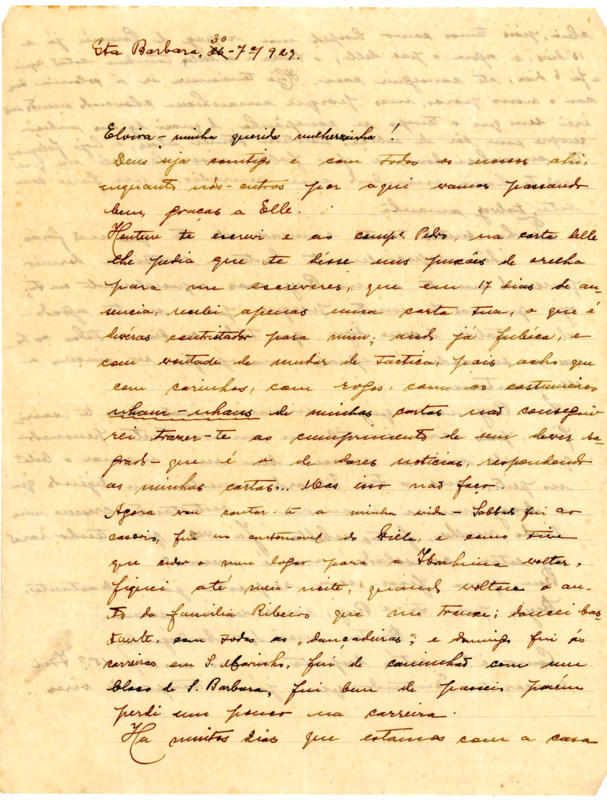 Sta Barbara, 30 - 7º/929.
Elvira - minha querida mulherzinha!
Deus seja comtigo e com todos os nossos ahi,
enquanto nós-outros por aqui vamos passando
bem, graças a Elle.
Hontem te escrevi e ao comp.e Pedro, na carta delle
lhe pedia que te désse uns puxões de orelha
para me escreveres, que em 17 dias de au-
sencia, recebi apenas uma carta tua, o que é
devéras contristador para mim; ando já e
com vontade de mudar de tactica, pois acho que
com carinhos, com rogos, como os costumeiros
nham-nhans de minhas cartas não consegui-
rei trazer-te ao cumprimento de um dever sa-
grado - que é o de dares noticias, respondendo
as minhas cartas... Mas isso não faço.
Agora vou contar-te a minha vida - Sabbado fui ao
fui no automovel do e como tive
que ceder o meu logar para a voltar,
fiquei até meia-noite, quando voltou o au-
to da familia Ribeiro que me trouxe; dancei bas-
tante, com todas as "dançadeiras", e domingo fui ás
carreiras em S. Marinho, fui de caminhão com um
bloco de S. Barbara, fui bem de passeio porém
perdi um pouco na carreira.
Ha muitos dias que estamos com a casa